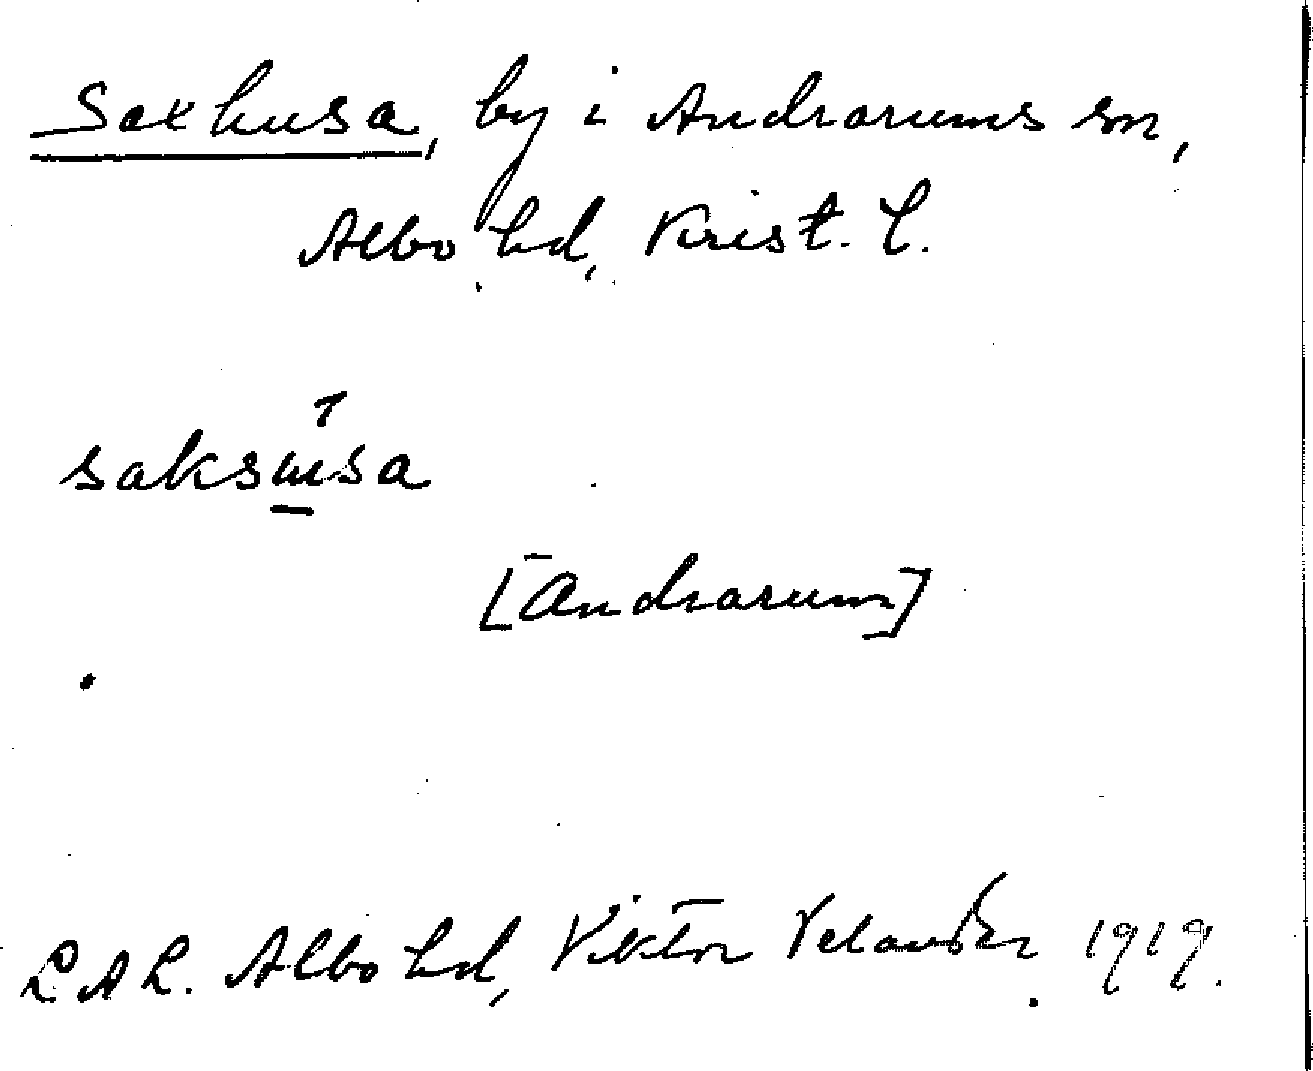 Saxhusa, by i Andrarums sn,
Albo hd, Krist. l.
saksusa
[Andrarum]
L A L. Albo hd, Viktor Velander 1919.